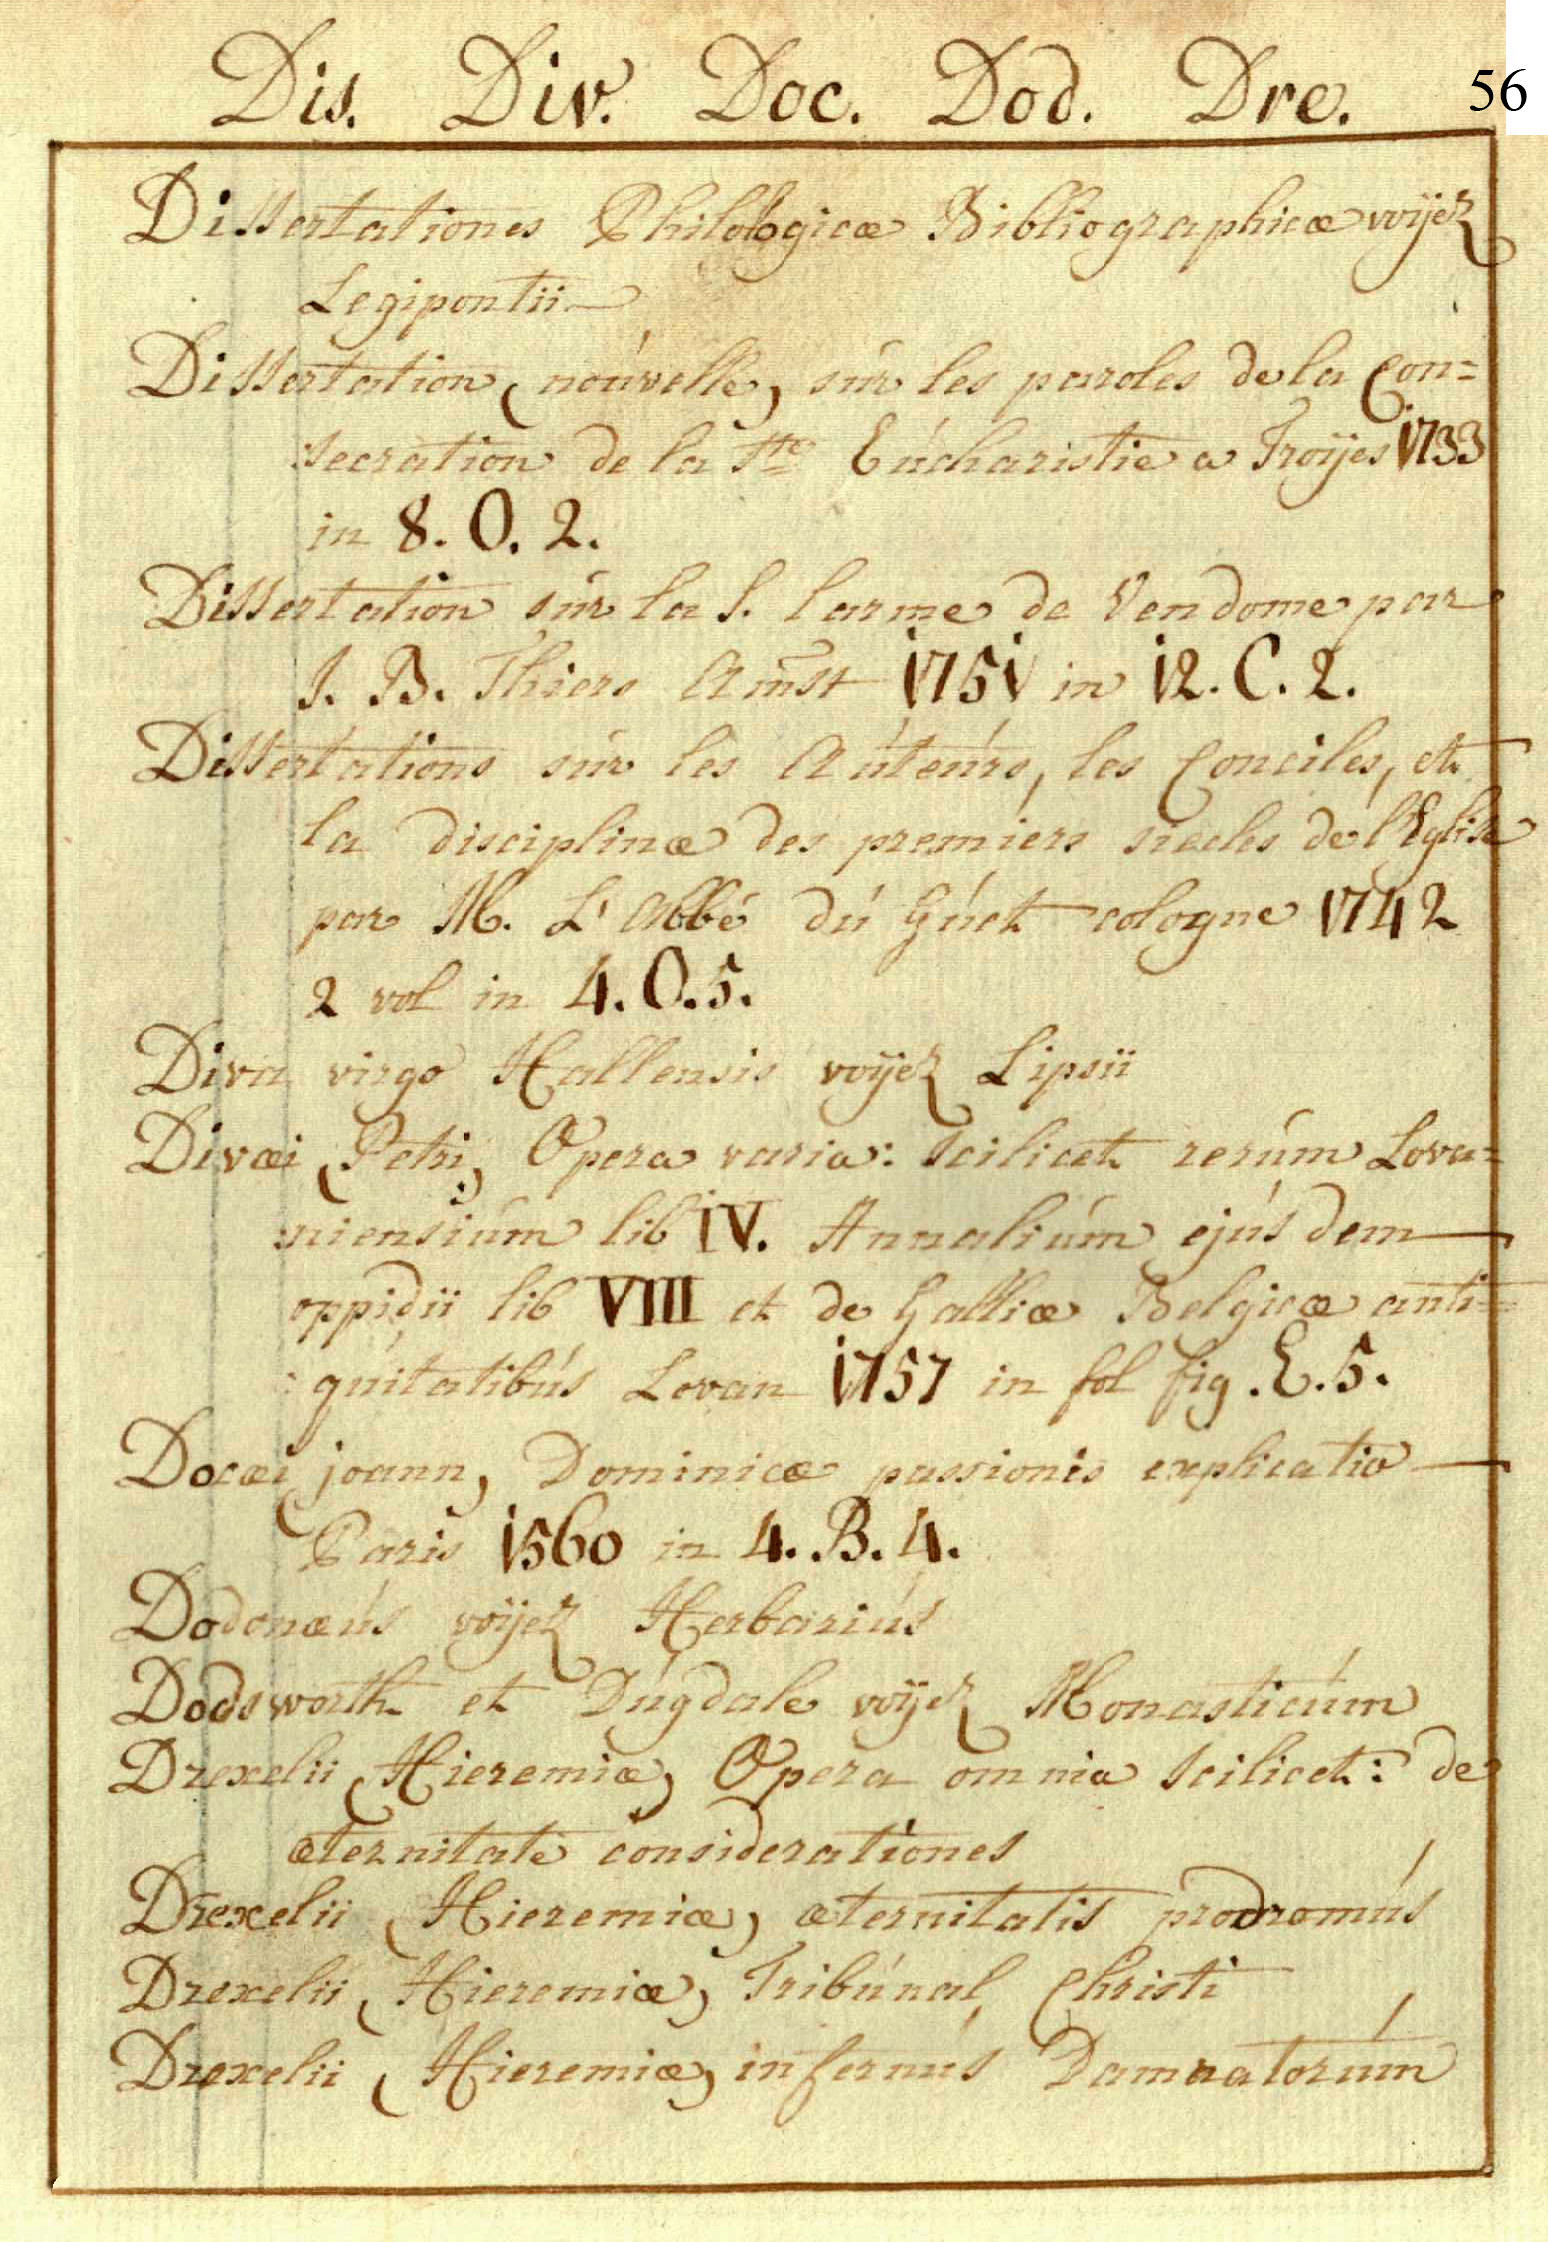 Dis. Div. Doc. Dod. Dre. 56
Dissertationes Philologicæ Bibliographicæ voijez
Legipontii
Dissertation (nouvelle) sur les paroles de la Con=
:secration de la Ste Eucharistie a Troijes 1733
in 8. O. 2.
Dissertation sur la S. larme de Vendome par
J. B. Thiers Amst 1751 in 12. C. 2.
Dissertations sur les Auteurs, les Conciles, et
la disciplinæ des premiers siecles de l'Eglise
par M. L'Abbé du Guet cologne 1742
2 vol in 4. O. 5.
Diva virgo Hallensis voijez Lipsii
Divæi (Petri) Opera varia: scilicet rerum Lova=
:niensium lib IV. Annalium ejusdem
oppidii lib VIII et de Galliæ Belgicæ anti=
:quitatibus Lovan 1757 in fol fig. E. 5.
Docæi (joann) Dominicæ passionis explicatio
Paris 1560 in 4. B. 4.
Dodonæus voijez Herbarius
Dodsworth et Dugdale voijez Monasticum
Drexelii (Hieremiæ) Opera omnia scilicet: de
æternitate considerationes
Drexelii (Hieremiæ) æternitatis prodromus
Drexelii (Hieremiæ) Tribunal Christi
Drexelii (Hieremiæ) infernus Damnatorum